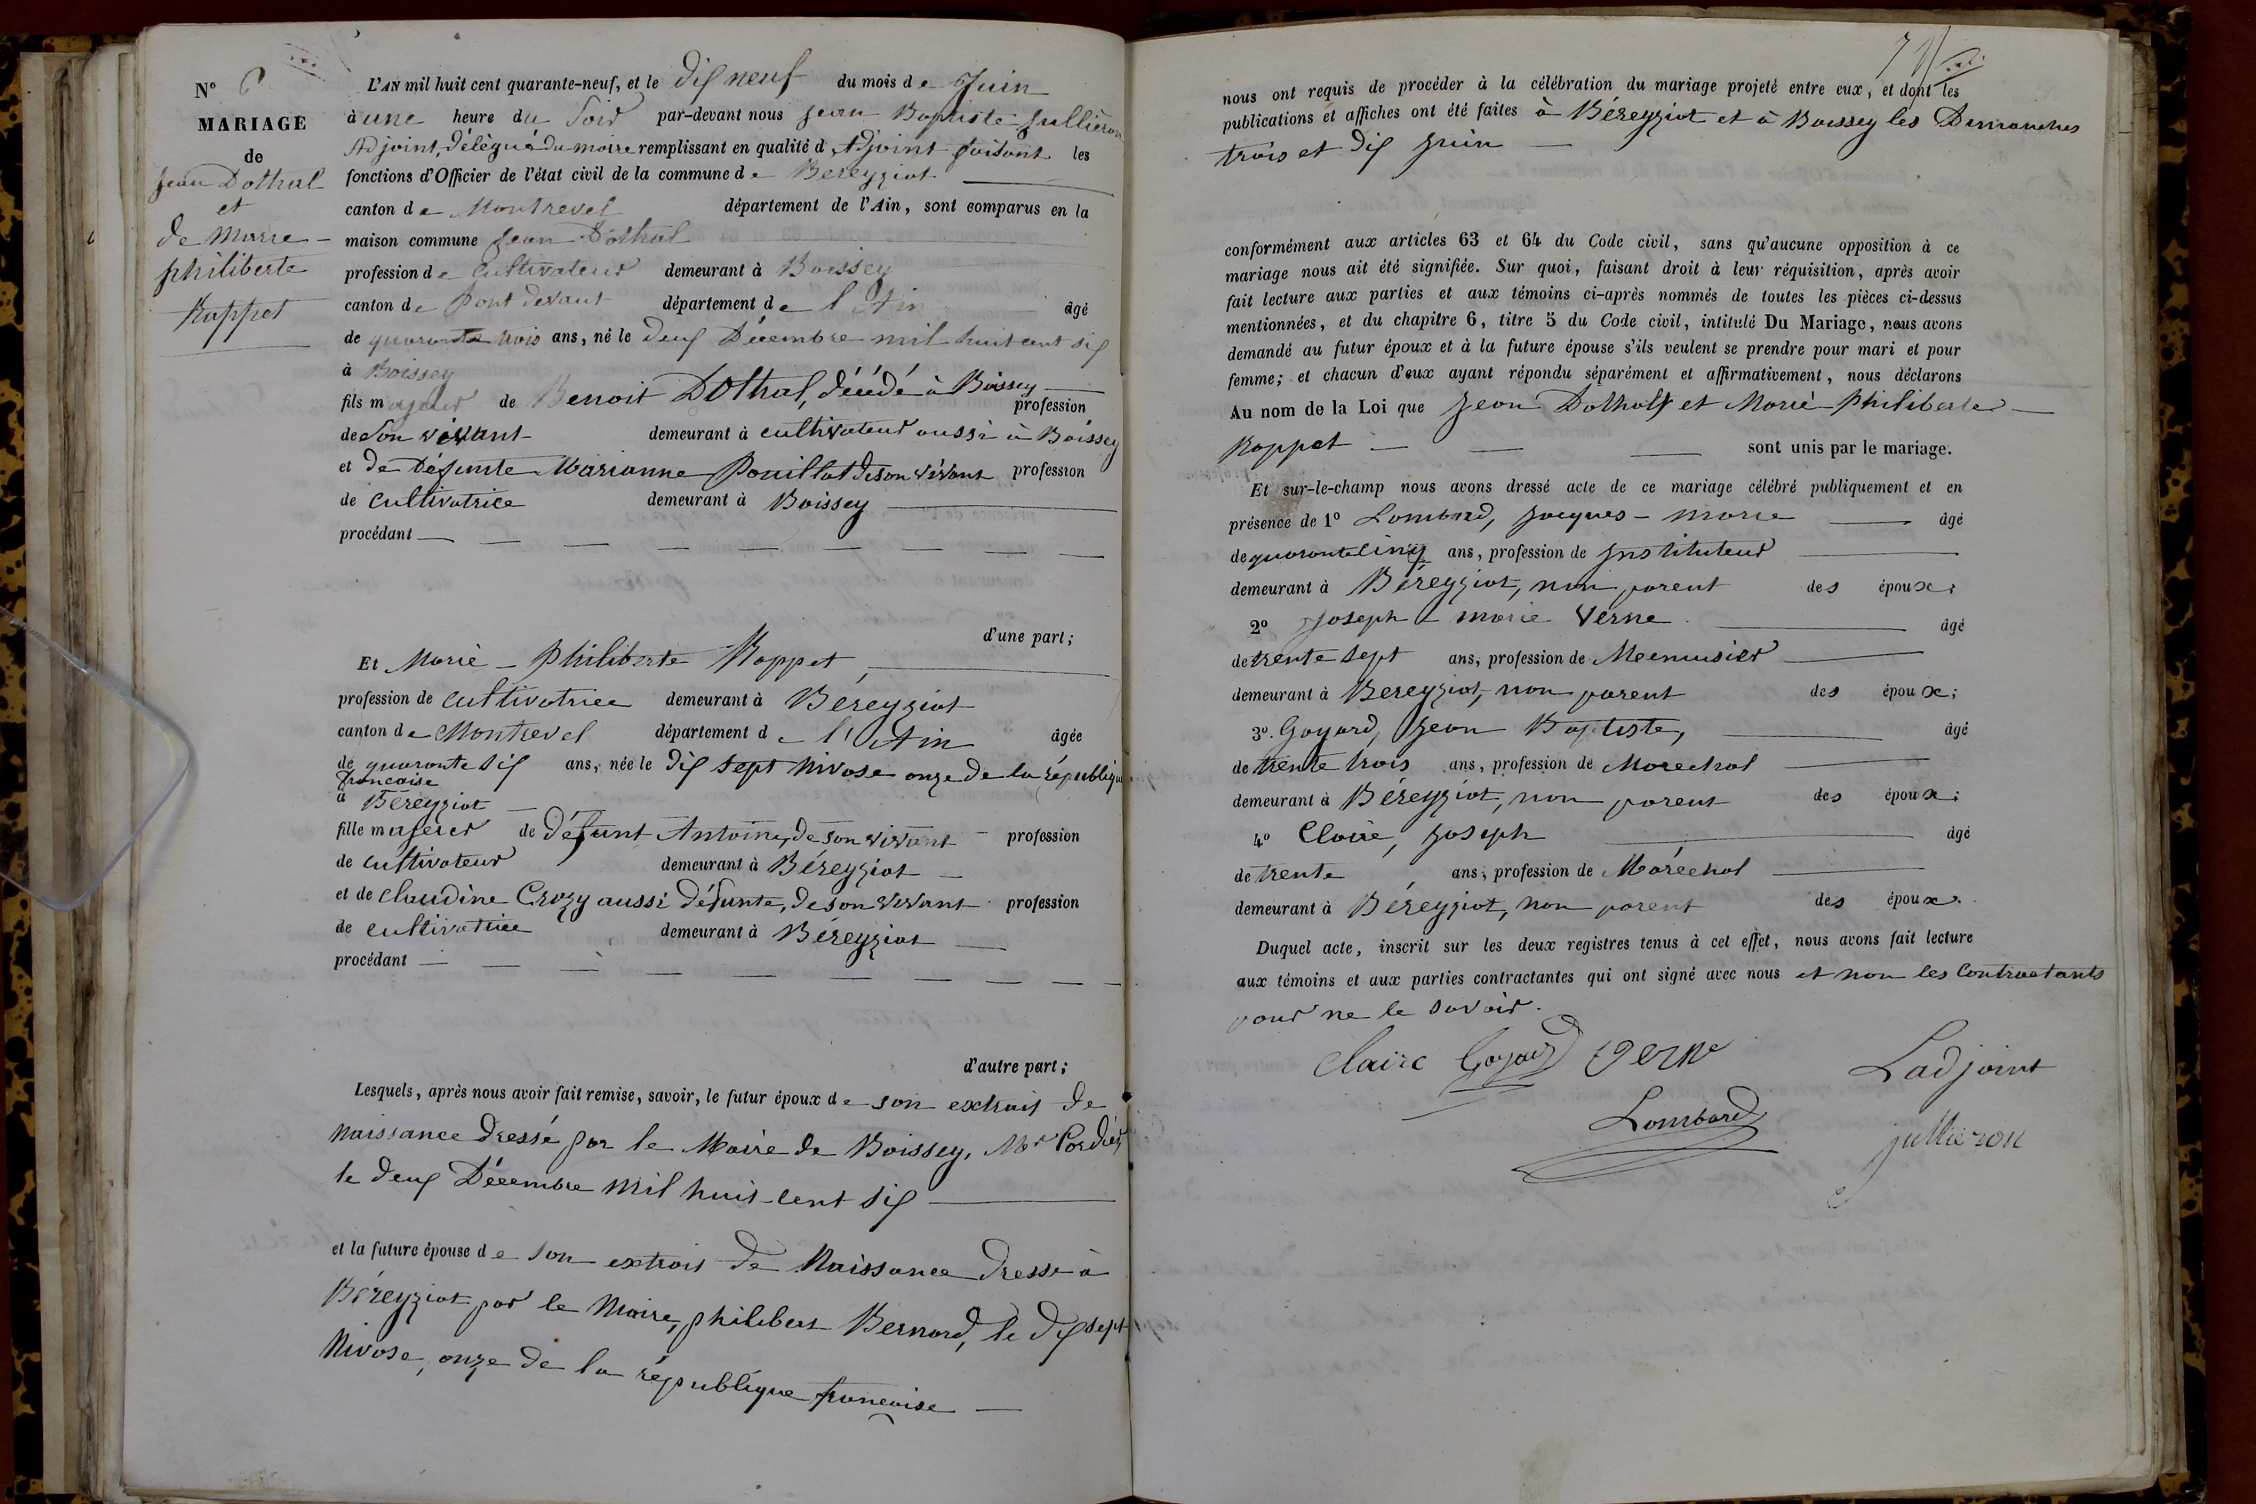 N° 6
MARIAGE
de
Jean Dothal
et
de Marie
philiberte
Rappet
L'AN mil huit cent quarante-neuf, et le dix neuf du mois de Juin
à une heure du Soir par-devant nous Jean Baptiste Jullieron
Adjoint, délégué du maire remplissant en qualité d'Adjoint faisant les
fonctions d'Officier de l'état civil de la commune de Béreyziat
canton de Montrevel département de l'Ain, sont comparus en la
maison commune Jean Dothal
profession de cultivateur demeurant à Boissey
canton de Pont devaux département de l'Ain âgé
de quarante trois ans, né le deux Décembre mil huit cent six
à Boissey
fils majeur de Benoit Dothal, décédé à Boissey profession
de Son vivant demeurant à cultivateur aussi à Boissey
et de Défunte Marianne Pouillat de son vivant profession
de cultivatrice demeurant à Boissey
procédant
d'une part;
Et Marie - Philiberte Rappet
profession de cultivatrice demeurant à Béreyziat
canton de Montrevel département de l'Ain âgée
de quarante six ans, née le dix sept Nivose onze de la république
francaise
à Béreyziat
fille majeur de défunt Antoine, de son vivant profession
de cultivateur demeurant à Béreyziat
et de claudine Crozy aussi défunte, de son vivant profession
de cultivatrice demeurant à Béreyziat
procédant
d'autre part;
Lesquels, après nous avoir fait remise, savoir, le futur époux de son extrait de
Naissance dressé par le Maire de Boissey, Mr Cordier,
le deux Décembre mil huit cent six
et la future épouse de son extrait de Naissance dressé à
Béreyziat par le Maire, philibert Bernard, le dix sept
Nivose, onze de la république francaise
nous ont requis de procéder à la célébration du mariage projeté entre eux, et dont les
publications et affiches ont été faites à Béreyziat et à Boissey les Dimanches
trois et dix Juin
conformément aux articles 63 et 64 du Code civil, sans qu'aucune opposition à ce
mariage nous ait été signifiée. Sur quoi, faisant droit à leur réquisition, après avoir
fait lecture aux parties et aux témoins ci-après nommés de toutes les pièces ci-dessus
mentionnées, et du chapitre 6, titre 5 du Code civil, intitulé Du Mariage, nous avons
demandé au futur époux et à la future épouse s'ils veulent se prendre pour mari et pour
femme; et chacun d'eux ayant répondu séparément et affirmativement, nous déclarons
Au nom de la Loi que Jean Dothal et Marie Philiberte
Rappet sont unis par le mariage.
Et sur-le-champ nous avons dressé acte de ce mariage célébré publiquement et en
présence de 1° Lombard, Jacques - Marie âgé
de quarante cinq ans, profession de Instituteur
demeurant à Béreyziat, non parent des époux;
2° Joseph - marie Verne âgé
de trente sept ans, profession de Meenusier
demeurant à Bereyziat, non parent des époux;
3°. Goyard, Jean Baptiste, âgé
de trente trois ans, profession de Marechal
demeurant à Béreyziat, non parent des époux;
4° Claire, Joseph âgé
de trente ans, profession de Maréchal
demeurant à Béreyziat, non parent des époux.
Duquel acte, inscrit sur les deux registres tenus à cet effet, nous avons fait lecture
aux témoins et aux parties contractantes qui ont signé avec nous et non les Contractants
pour ne le savoir.
Claire Goyard Verne Ladjoint
Lombard Jullieron